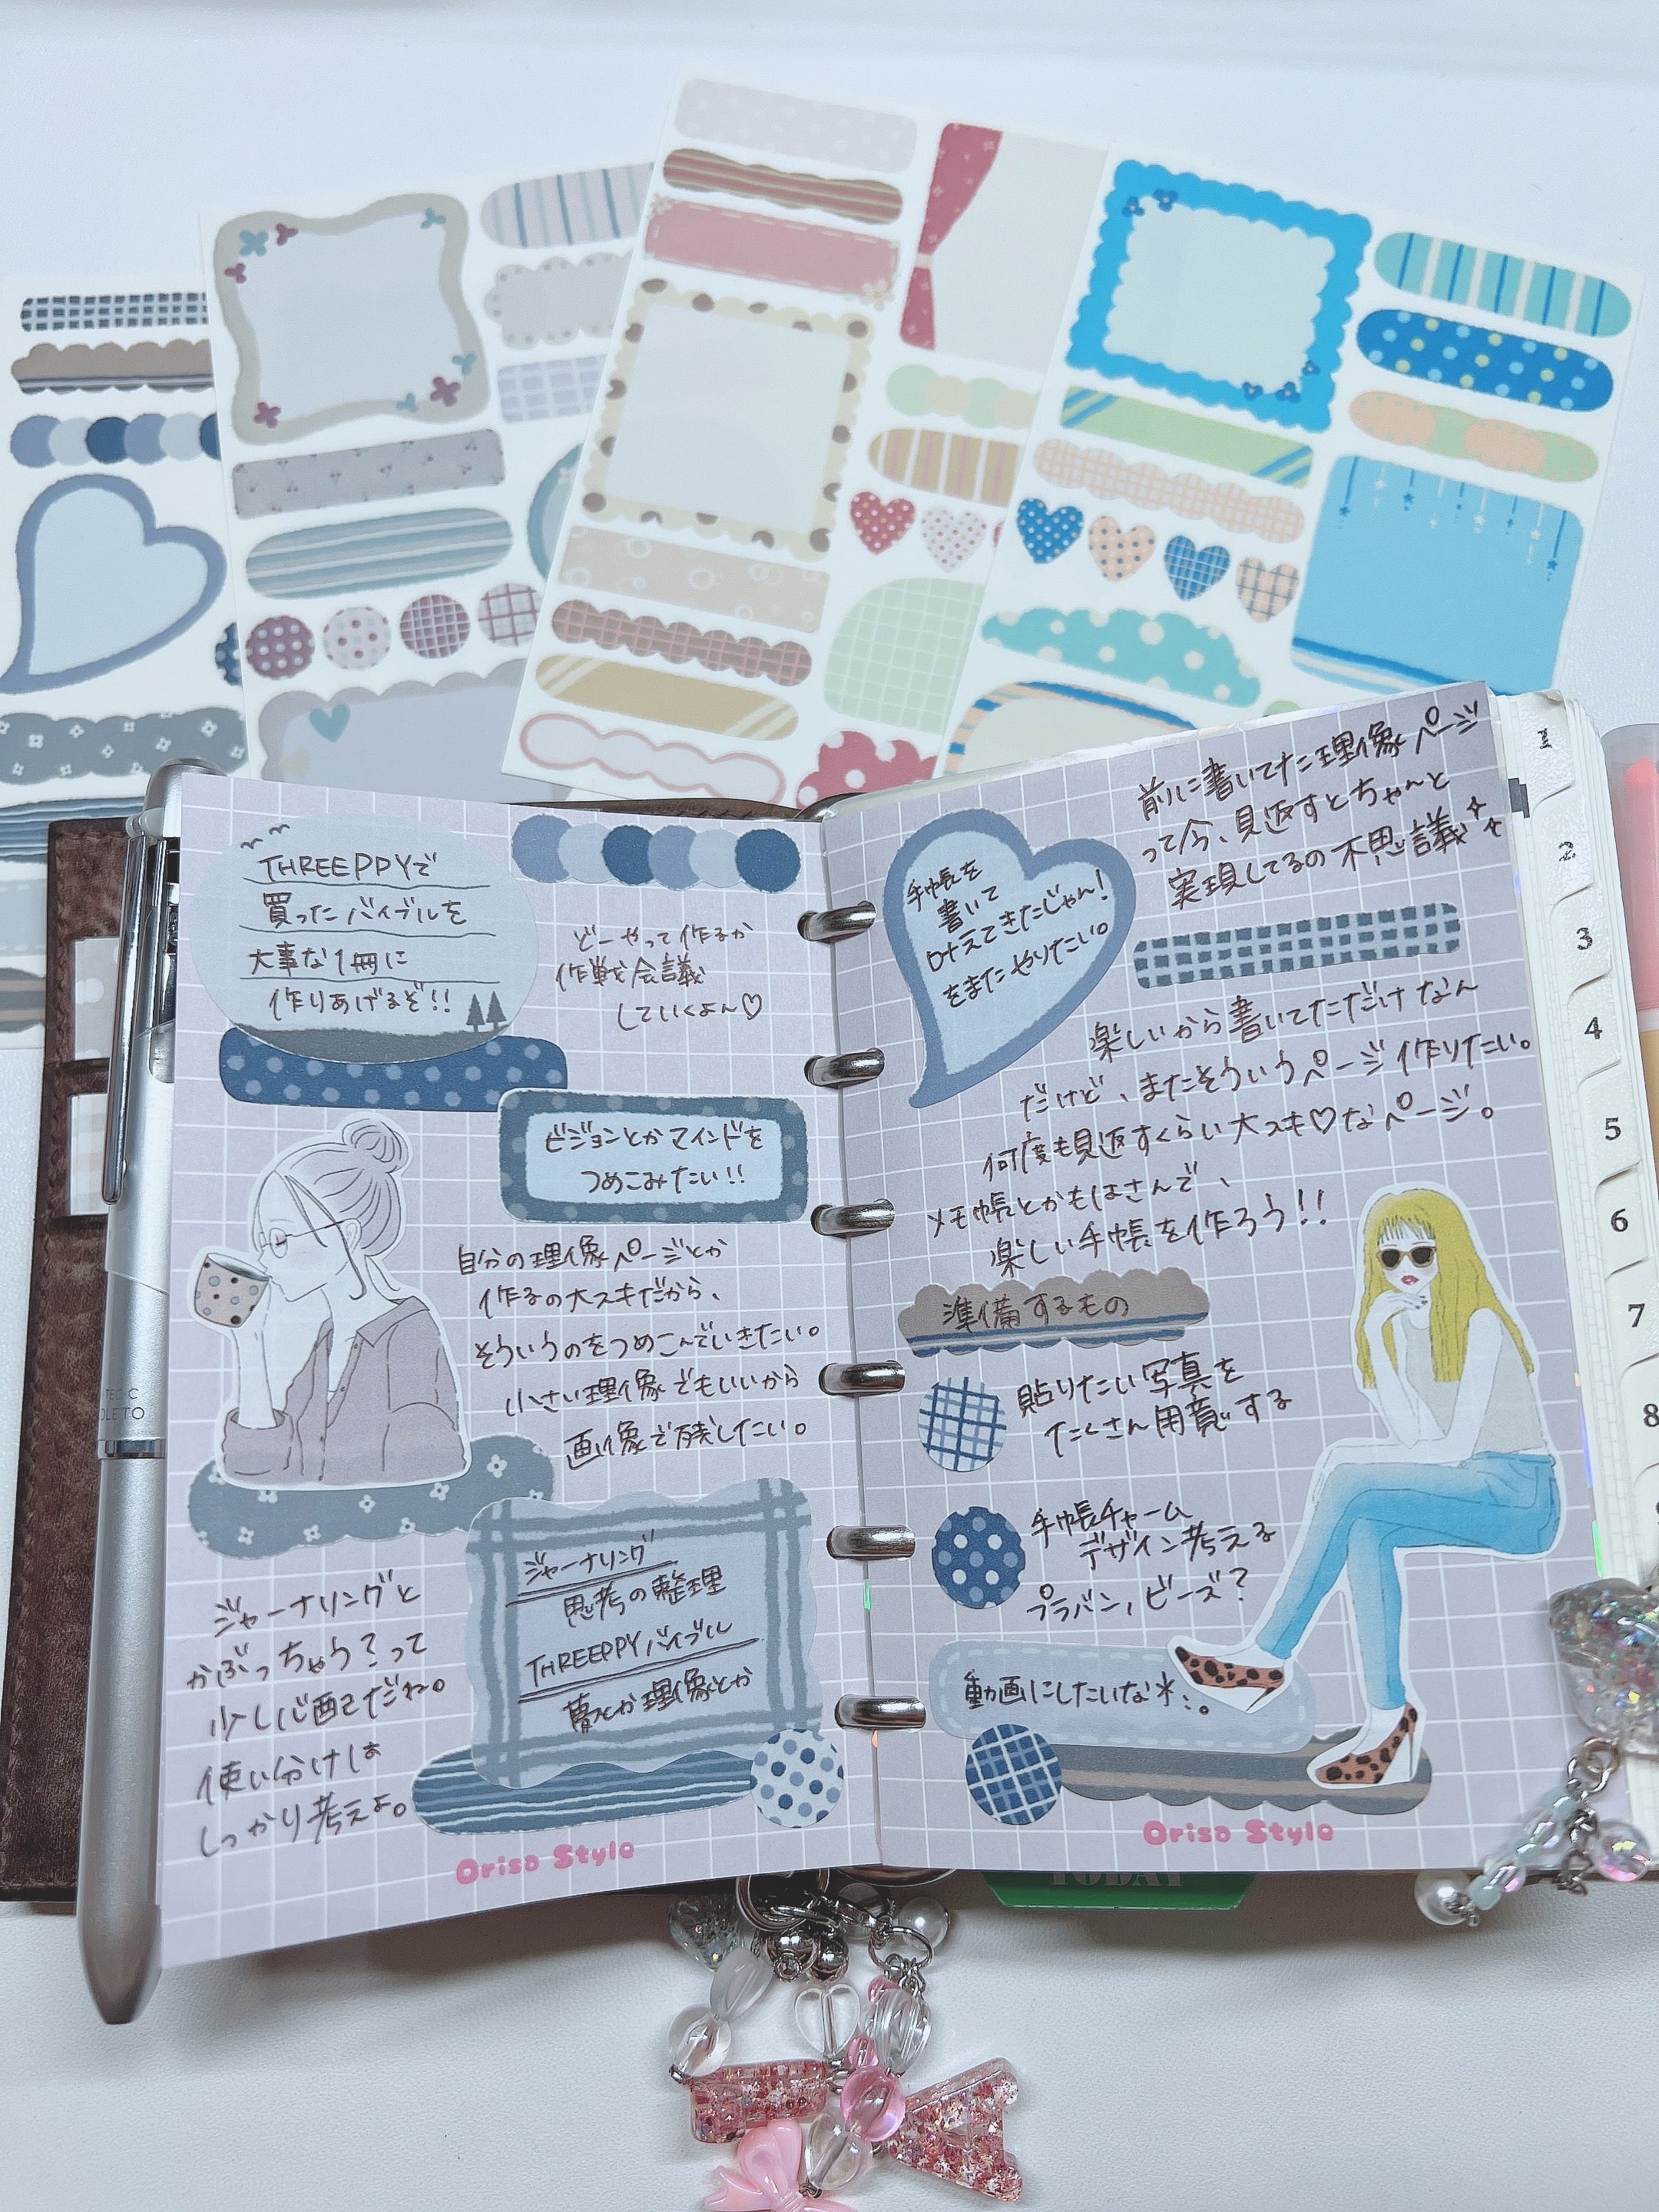 THREEPPYで
買ったバイブルを
大事な1冊に
作りあげるぞ!!
どーやって作るか
作戦会議
していくよん♡
ビジョンとかマインドを
つめこみたい!!
自分の理像ページとか
作るの大スキだから、
そういうのをつめこんでいきたい。
小さい理像でもいいから
画像で残したい。
ジャーナリング
思考の整理
THREEPPYバイブル
夢とか理像とか
ジャーナリングと
かぶっちゃう?って
少し心配だわ。
使い分けは
しっかり考えよ。
Orisa Style
前に書いてた理像ページ
って今、見返すとちゃんと
実現してるの不思議
手帳を
書いて
叶えてきたじゃん!
をまたやりたい。
楽しいから書いてただけなん
だけど、またそういうページ作りたい。
何度も見返すくらい大スキ♡なページ。
メモ帳とかもはさんで、
楽しい手帳を作ろう!!
準備するもの
貼りたい写真を
たくさん用意する
手帳チャーム
デザイン考える
プラバン、ビーズ?
動画にしたいな*:。
Orisa Style
1
2
3
4
5
6
7
8
TODAY